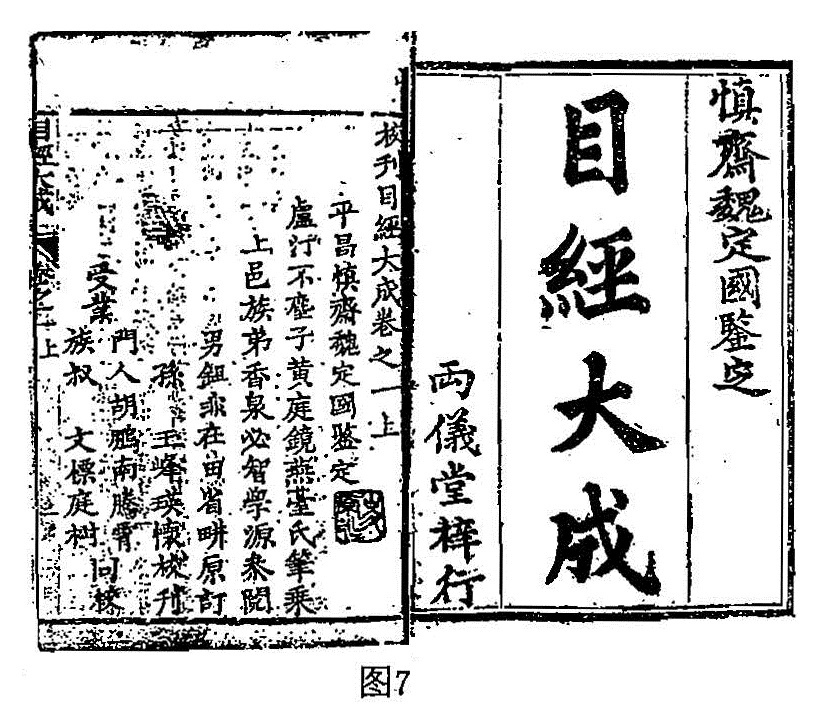 慎齋魏定國鑒定
目經大成
兩儀堂梓行
校刊目經大成卷之一上
平昌慎齋魏定國鑒定
盧汀不塵子黄庭鏡燕臺氏筆乘
上邑族弟香泉必智學源叅閱
男鈕非在田省畊原訂
孫 玉峰瑛懷校刊
受業
門人胡鵬南騰霄
族叔 文標庭樹
同校
目經大成
卷之一上
图7